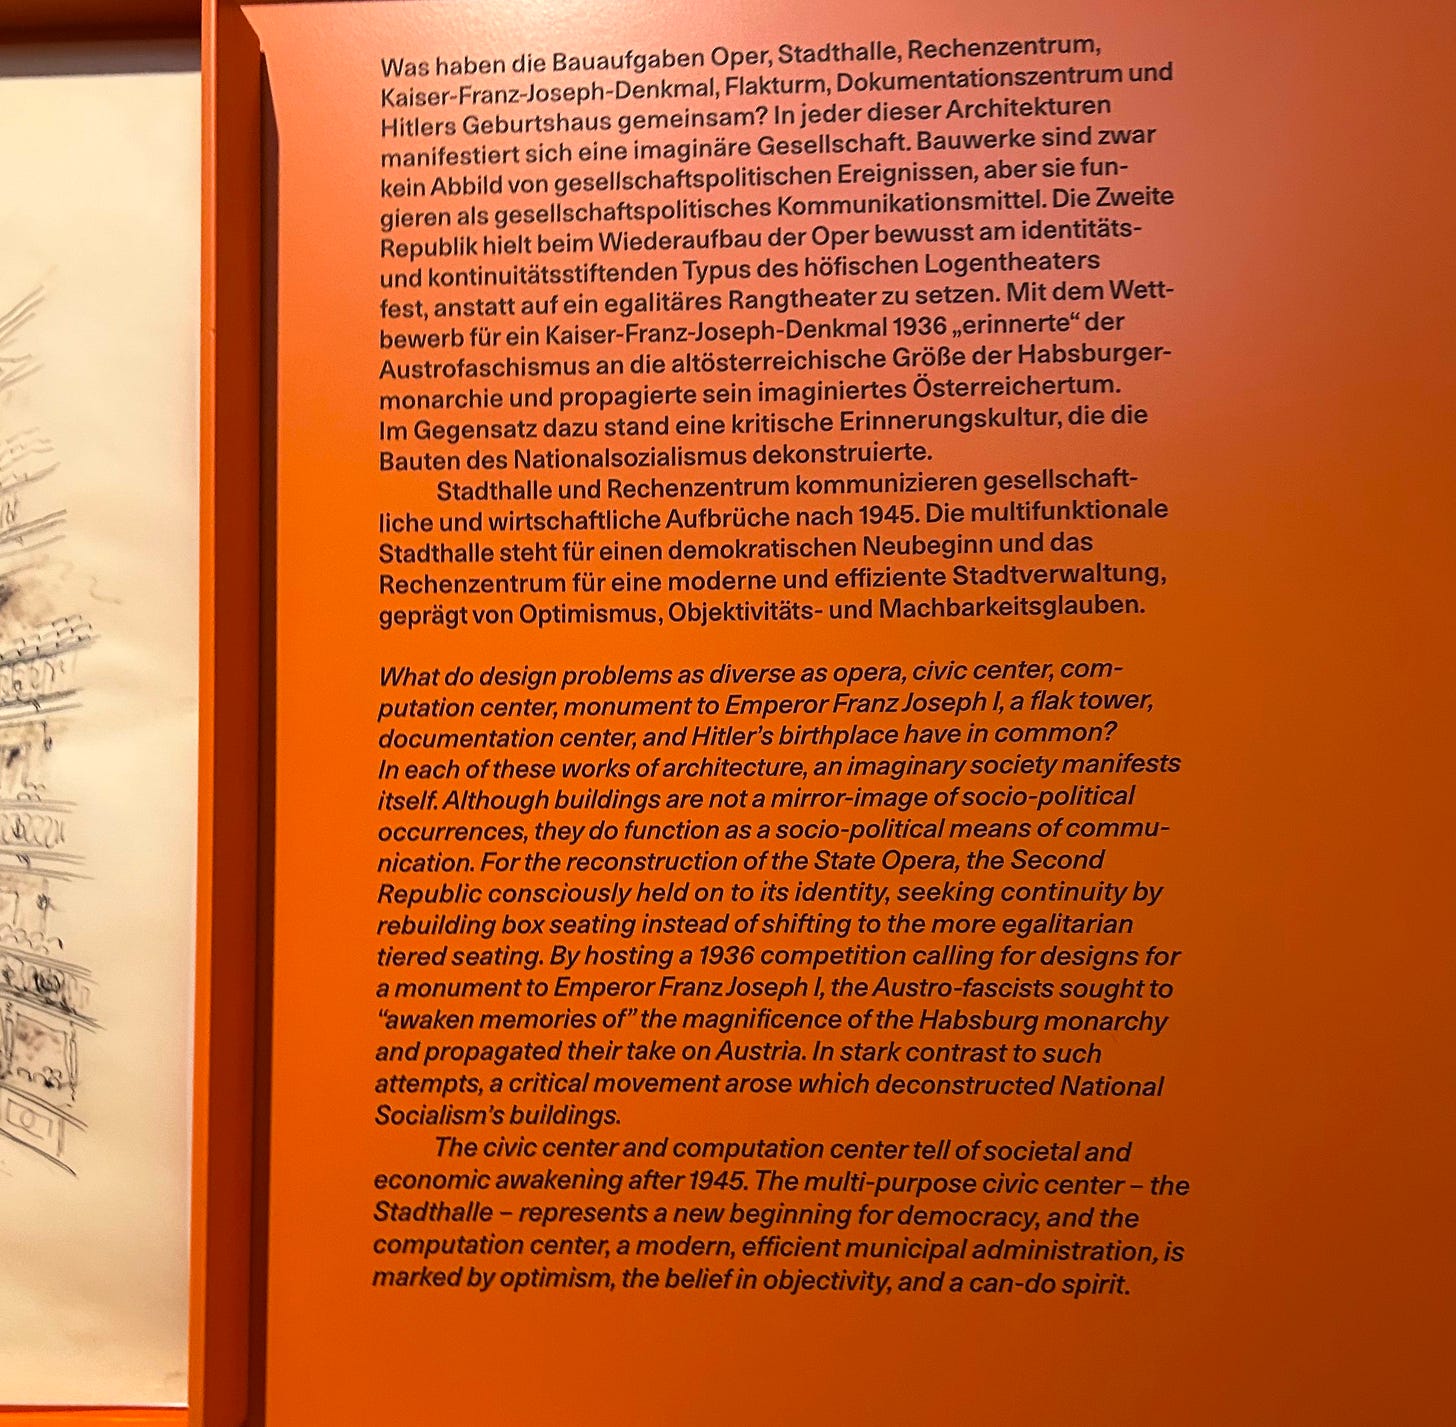 Was haben die Bauaufgaben Oper, Stadthalle, Rechenzentrum,
Kaiser-Franz-Joseph-Denkmal, Flakturm, Dokumentationszentrum und
Hitlers Geburtshaus gemeinsam? In jeder dieser Architekturen
manifestiert sich eine imaginäre Gesellschaft. Bauwerke sind zwar
kein Abbild von gesellschaftspolitischen Ereignissen, aber sie fun-
gieren als gesellschaftspolitisches Kommunikationsmittel. Die Zweite
Republik hielt beim Wiederaufbau der Oper bewusst am identitäts-
und kontinuitätsstiftenden Typus des höfischen Logentheaters
fest, anstatt auf ein egalitäres Rangtheater zu setzen. Mit dem Wett-
bewerb für ein Kaiser-Franz-Joseph-Denkmal 1936 „erinnerte“ der
Austrofaschismus an die altösterreichische Größe der Habsburger-
monarchie und propagierte sein imaginiertes Österreichertum.
Im Gegensatz dazu stand eine kritische Erinnerungskultur, die die
Bauten des Nationalsozialismus dekonstruierte.
Stadthalle und Rechenzentrum kommunizieren gesellschaft-
liche und wirtschaftliche Aufbrüche nach 1945. Die multifunktionale
Stadthalle steht für einen demokratischen Neubeginn und das
Rechenzentrum für eine moderne und effiziente Stadtverwaltung,
geprägt von Optimismus, Objektivitäts- und Machbarkeitsglauben.
What do design problems as diverse as opera, civic center, com-
putation center, monument to Emperor Franz Joseph I, a flak tower,
documentation center, and Hitler's birthplace have in common?
In each of these works of architecture, an imaginary society manifests
itself. Although buildings are not a mirror-image of socio-political
occurrences, they do function as a socio-political means of commu-
nication. For the reconstruction of the State Opera, the Second
Republic consciously held on to its identity, seeking continuity by
rebuilding box seating instead of shifting to the more egalitarian
tiered seating. By hosting a 1936 competition calling for designs for
a monument to Emperor Franz Joseph I, the Austro-fascists sought to
“awaken memories of” the magnificence of the Habsburg monarchy
and propagated their take on Austria. In stark contrast to such
attempts, a critical movement arose which deconstructed National
Socialism's buildings.
The civic center and computation center tell of societal and
economic awakening after 1945. The multi-purpose civic center – the
Stadthalle – represents a new beginning for democracy, and the
computation center, a modern, efficient municipal administration, is
marked by optimism, the belief in objectivity, and a can-do spirit.